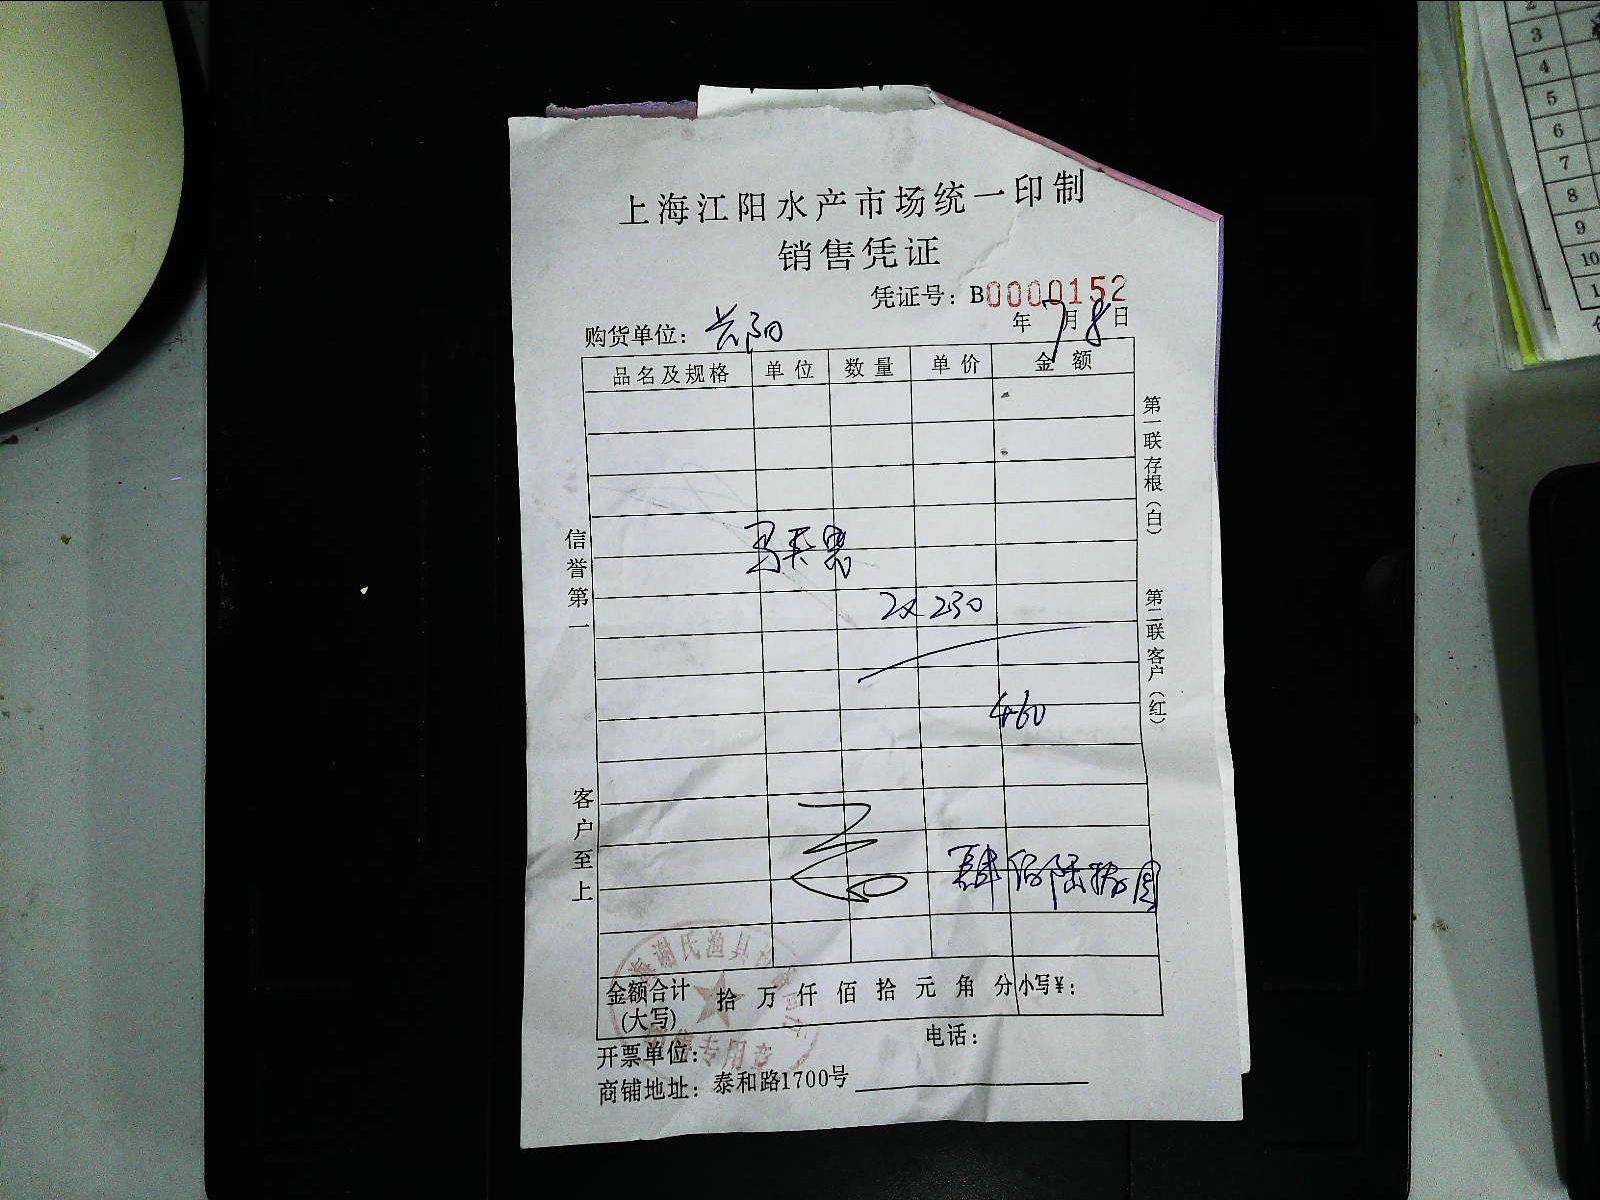 上海江阳水产市场统一印制
销售凭证
凭证号：B0000152
年7月8日
购货单位：兴阳
品名及规格 单位 数量 单价 金额
2x230
460
肆佰陆拾圆
金额合计(大写) 拾 万 仟 佰 拾 元 角 分 小写¥：
开票单位： 电话：
商铺地址：泰和路1700号
信誉第一
客户至上
第一联 存根（白）
第二联 客户（红）
谢氏渔具
专用章
2
3
4
5
6
7
8
9
10